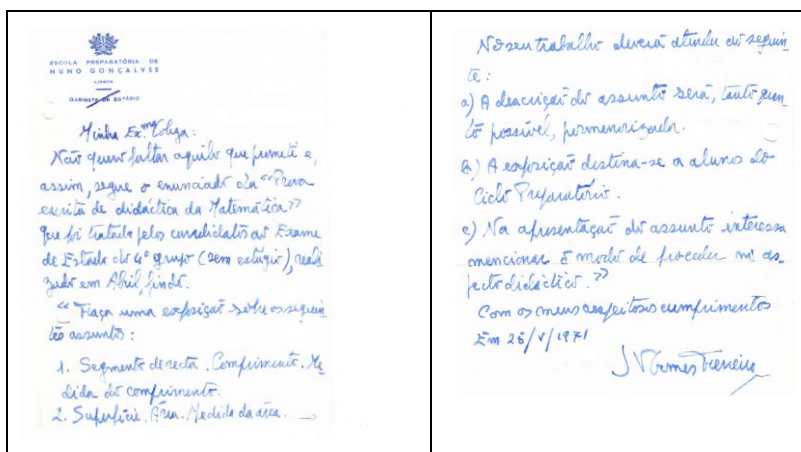 ESCOLA PREPARATÓRIA DE
NUNO GONÇALVES
LISBOA
GABINETE DE ESTÁGIO
Minha Ex.ma Colega:
Não quero faltar aquilo que prometi e,
assim, segue o enunciado da "Prova
escrita de didáctica da Matemática"
que foi tratado pelos candidatos ao Exame
de Estado do 4º grupo (sem estágio), reali
zado em Abril, findo.
"Faça uma exposição sobre os seguin
tes assuntos:
1. Segmento de recta. Comprimento. Me
dida do comprimento.
2. Superfície. Área. Medida da área. →
No seu trabalho deverá atender ao seguin-
te:
a) A descrição do assunto será, tanto quan-
to possível, pormenorizada.
b) A exposição destina-se a alunos do
Ciclo Preparatório.
c) Na apresentação do assunto interessa
mencionar o modo de proceder no as-
pecto didáctico."
Com os meus respeitosos cumprimentos
Em 28/V/1971